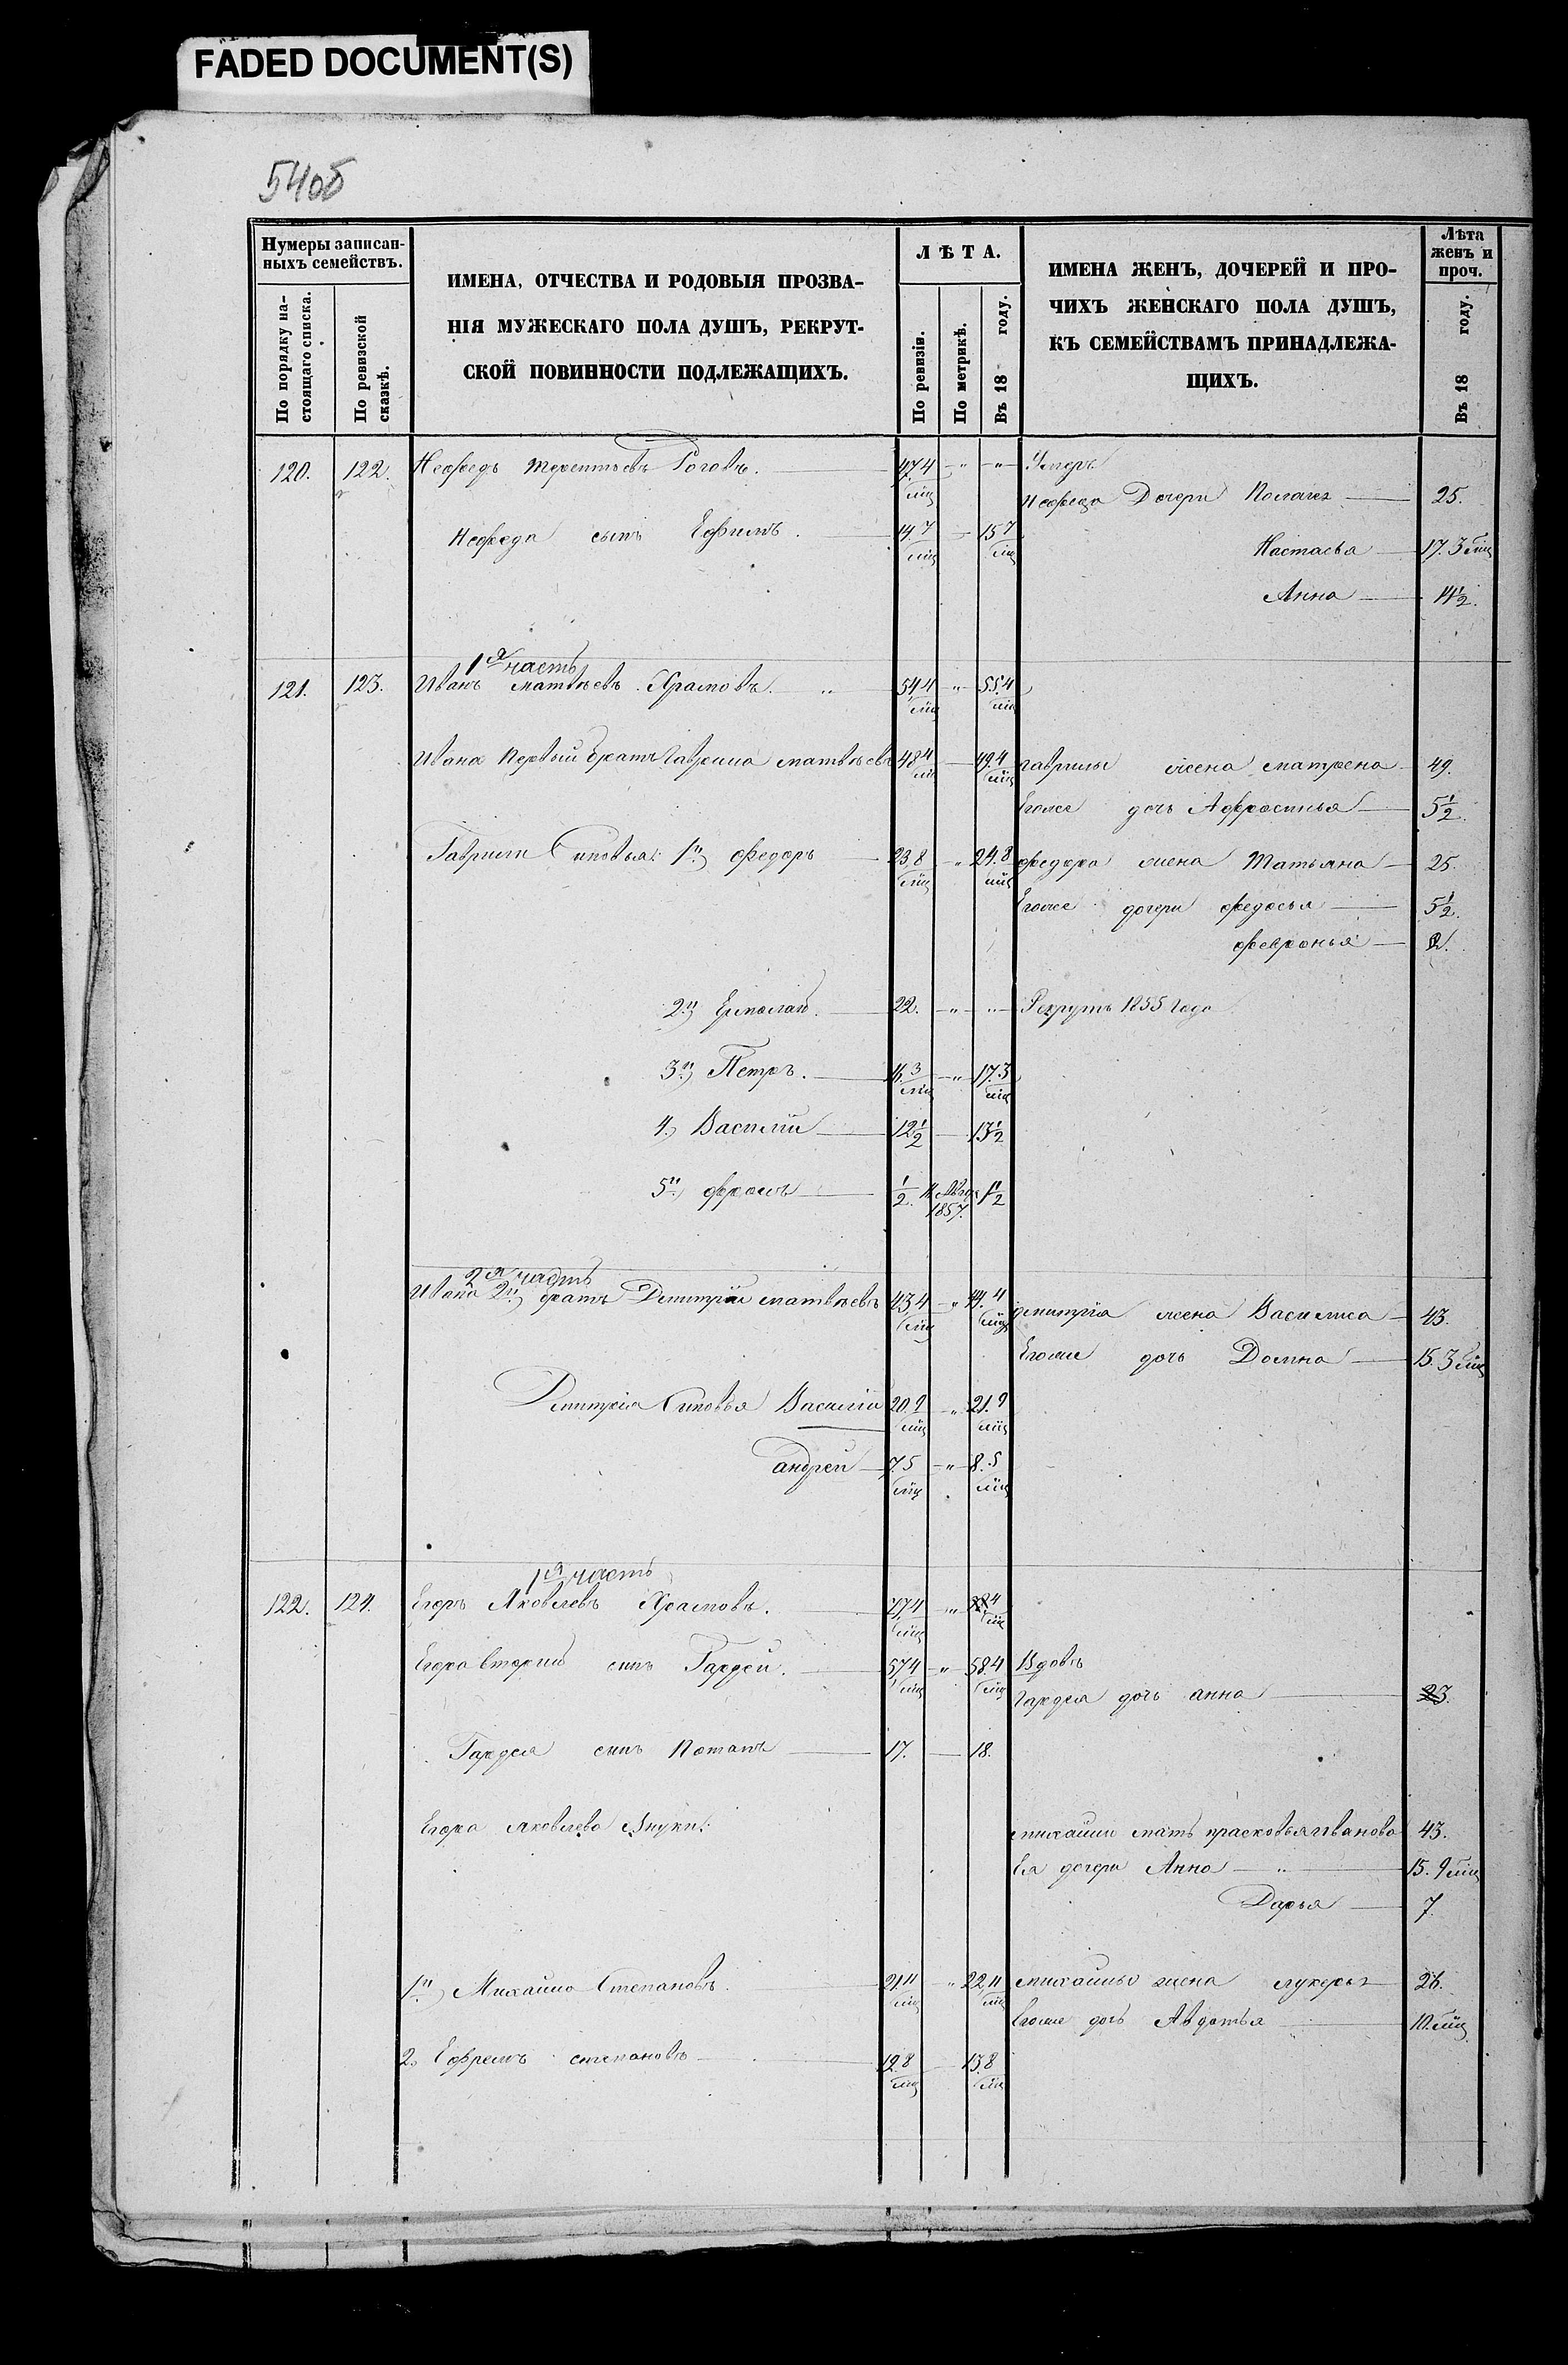 FADED DOCUMENT(S)
54об
Нумеры записан-
ныхъ семействъ.
По порядку на-
стоящаго списка.
По ревизской
сказкѣ.
ИМЕНА, ОТЧЕСТВА И РОДОВЫЯ ПРОЗВА-
НІЯ МУЖЕСКАГО ПОЛА ДУШЪ, РЕКРУТ-
СКОЙ ПОВИННОСТИ ПОДЛЕЖАЩИХЪ.
ЛѢТА.
По ревизіи.
По метрикѣ.
Въ 18 году.
ИМЕНА ЖЕНЪ, ДОЧЕРЕЙ И ПРО-
ЧИХЪ ЖЕНСКАГО ПОЛА ДУШЪ,
КЪ СЕМЕЙСТВАМЪ ПРИНАДЛЕЖА-
ЩИХЪ.
Лѣта
женъ и
проч.
Въ 18 году.
120. 122. Нефедъ Терентьевъ Роговъ. 47.4 мц " " Умеръ
Нефеда Дочери 25.
Нефеда сынъ Ефимъ. 14.7 мц 15 7 мц
Настасья 17. 3 мц
Анна 14 1/2.
1я часть
121. 123. Иванъ Матвѣевъ Храмовъ. " 54.4 мц " 55.4 мц
Ивана Первый братъ Гаврила Матвѣевъ 48 4 мц 49.4 мц Гаврилы жена Матрена 49.
Егоже дочь Афросинья 5 1/2.
Гаврилы Сыновья: 1й) Федоръ 23.8 мц " 24.8 мц Федора жена Татьяна 25.
Егоже дочери Федосья 5 1/2.
Февронья 2.
2й) Ермолай. 22. " " Рекрутъ 1855 Года
3й) Петръ. 16.3 мц " 17.3 мц
4) Василій 12 1/2 13 1/2
5й) Фролъ 1/2. 1857. 1 1/2
2я часть
Ивана 2й) братъ Дмитрій Матвѣевъ 43.4 мц " 44.4 мц Дмитрія жена Василиса 43.
Егоже дочь Домна 15. 3 мц
Дмитрія Сыновья Василій 20.9 мц " 21.9 мц
Андрей 7.5 мц " 8.5 мц
1я часть
122. 124. Егоръ Яковлевъ Храмовъ. 77.4 мц " мц
Егора вторый сынъ Гардей. 57.4 мц " 58.4 мц Вдовъ
Гардея дочь Анна 23.
Гардея сынъ Потапъ 17. 18.
Егора Яковлева Внуки:
Михайлы мать Прасковья Иванова 43.
Ея дочери Анна " 15. 9 мц
Дарья 7.
1й) Михайло Степановъ. 21.11 мц " 22 11 мц Михайлы жена Лукерья 26.
Егоже дочь Авдотья 10. мц
2. Ефремъ Степановъ 12.8 мц 13.8 мц